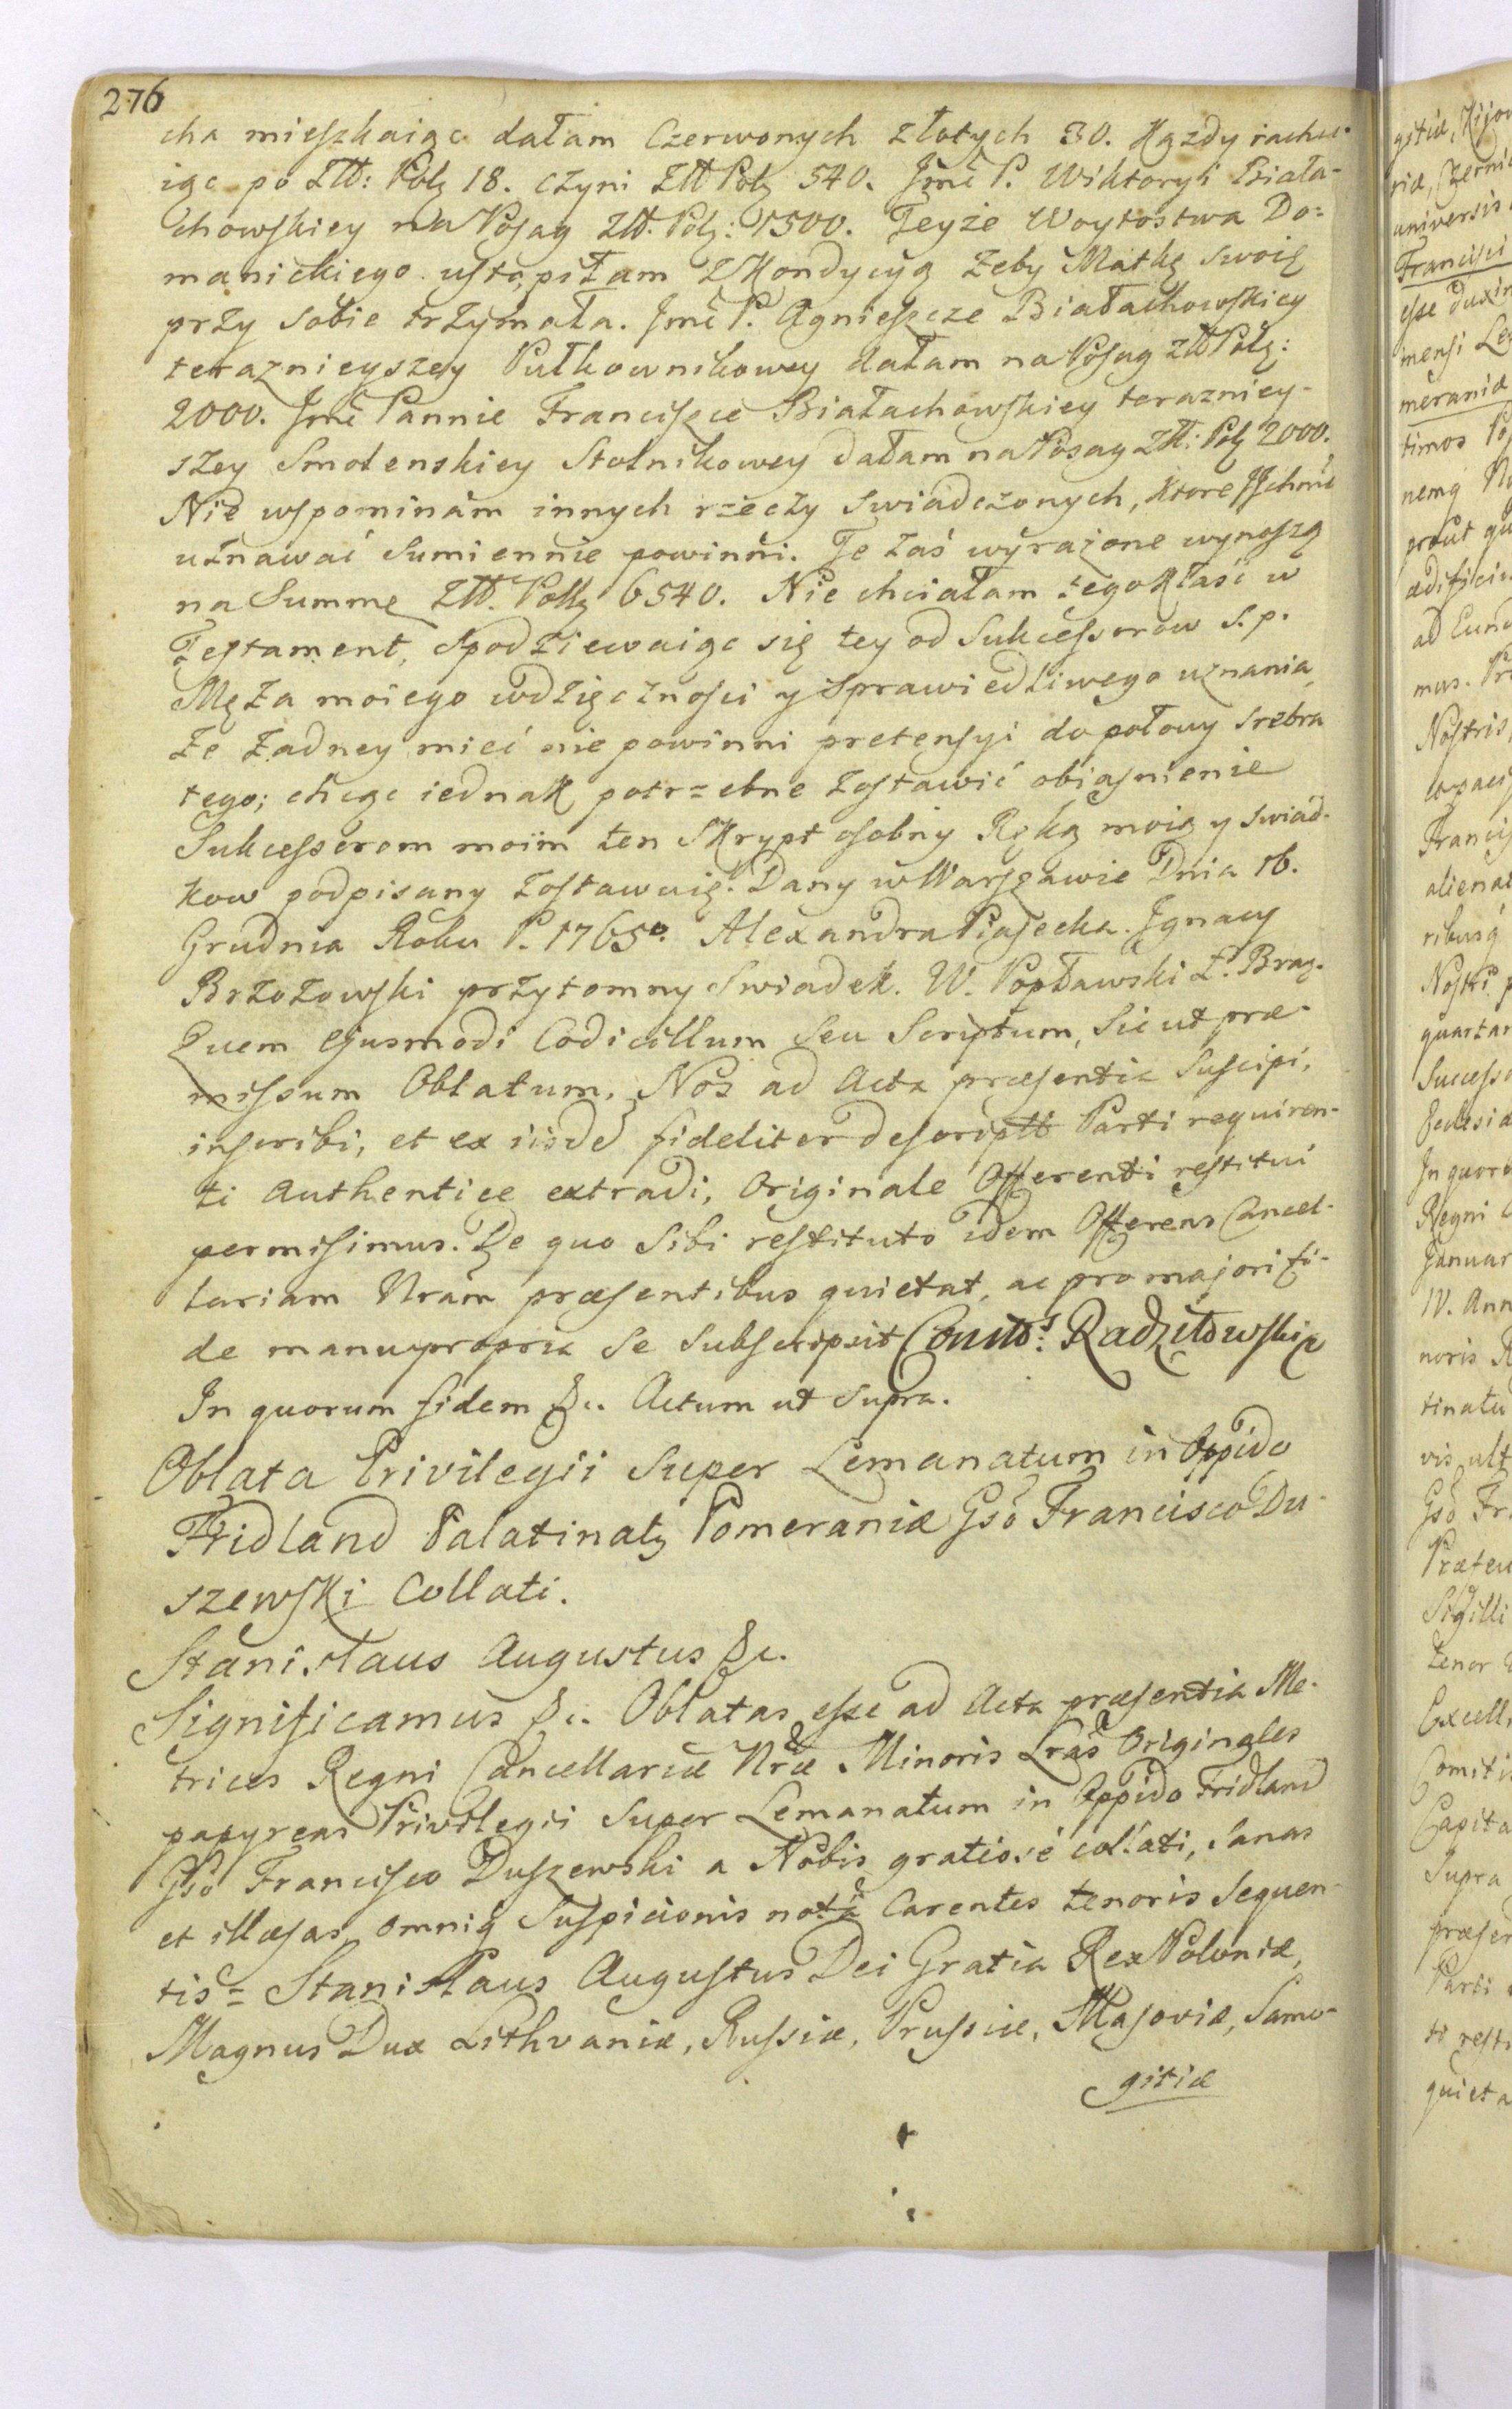 276
cha mieszkaiąc dałam Czerwonych złotych 30. Kązdy rachu-
iąc po Złł: Polę 18. czyni Złł Polę 540. Jmć P. Wiktoryi Biała-
chowskiey na Posag Złł. Polę: 1500. Teyże Woytostwa Do-
manickiego ustąpiłam z Kondycyą żeby Matkę swoię
przy sobie trzymała. Jmć P. Agnieszce Białachowskiey
terazniejszey Pułkownikowey dałam na Posag złł Polę:
2000. Jmć Pannie Franciszce Białachowskiey terazniey-
szey Smolenskiey Stolnikowey dałam na Posag Złł: Polę 2000.
Nie wspominam innych rzeczy swiadczonych, ktore JJchmć
uznawać sumiennie powinni. Te zaś wyrażone wynoszą
na Summę Złł. Polę 6540. Nie chciałam tego kłaść w
Testament, spodziewaiąc się tey od Sukcessorow s. p.
Męża moiego wdzięczności y sprawiedliwego uznania,
że żadney mieć nie powinni pretensyi do połowy srebra
tego; chcąc iednak potrzebne zostawić obiasnienie
Sukcessorom moim ten Skrypt osobny Ręką moią y swiad-
kow podpisany zostawuię. Dany w Warszawie Dnia 16.
Grudnia Roku P. 1765o. Alexandra Piasecka. Jgnacy
Brzozowski przytomny Swiadek. W. Popławski Ł. Brag.
Quem Ejusmodi Codicillum seu Scriptum, sic ut præ-
missum Oblatum, Nos ad Acta præsentia suscipi,
inscribi, et ex iisdē fideliter descriptū Parti requiren-
ti authentice extradi, Originale Offerenti restitui
permisimus. De quo sibi restituto idem Offerens Cancel-
lariam Nram præsentibus quietat, ac pro majori fi-
de manu propria se subscripsit Radzitowski
In quorum fidem &c. Actum ut supra.
Oblata Privilegii super Lemanatum in Oppido
Fridland Palatinatę Pomeraniæ Gso Francisco Du-
szewski Collati.
Stanislaus Augustus &c.
Significamus &c. Oblatas esse ad Acta præsentia Me-
trices Regni Cancellariæ Nræ Minoris Lras Originales
papyreas Privilegii super Lemanatum in Oppido Fridland
Gso Francisco Duszewski a Nobis gratiosè collati, sanas
et illæsas, omniq suspicionis notâ carentes tenoris sequen-
tis = Stanislaus Augustus Dei Gratia Rex Poloniæ,
Magnus Dux Lithvaniæ, Russiæ, Prussiæ, Masoviæ, Samo-
gitiæ